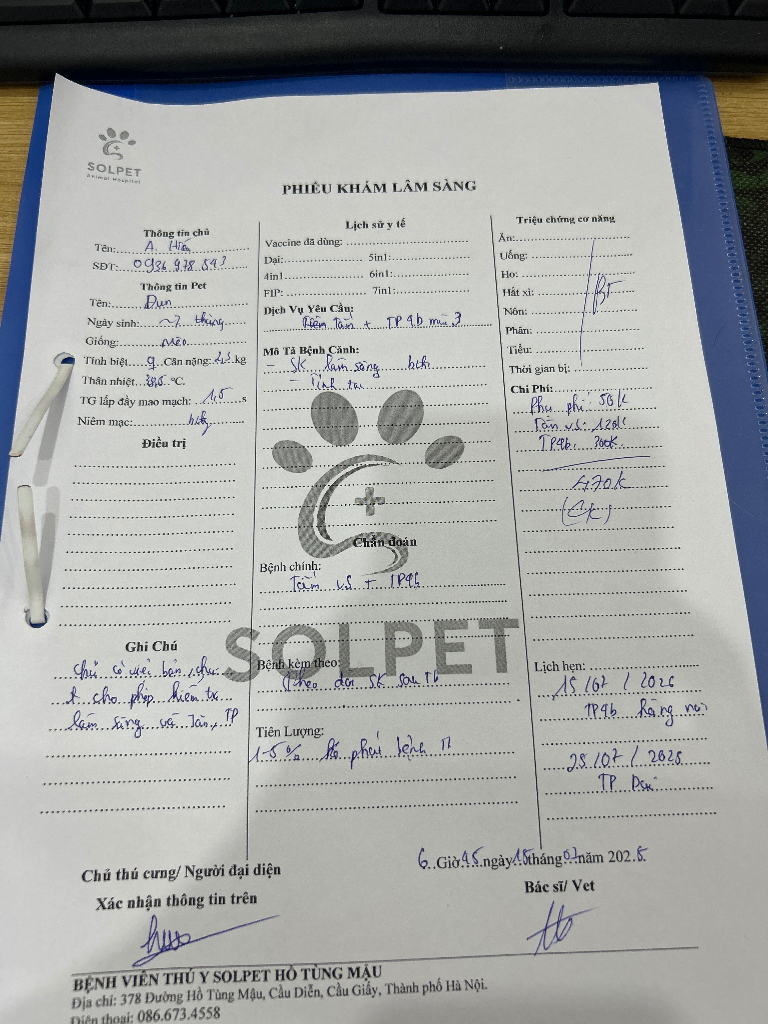 SOLPET
Animal Hospital
PHIẾU KHÁM LÂM SÀNG
Thông tin chủ
Tên: A. Hiếu
SĐT: 0936 978 543
Thông tin Pet
Tên: Đun
Ngày sinh: ~7 tháng
Giống: Mèo
Tính biệt: Cân nặng: kg
Thân nhiệt: 38,5 °C.
TG lấp đầy mao mạch: 1,5 s
Niêm mạc: bth
Điều trị
Ghi Chú
chủ có việc bận, chủ
cho phép kiểm tra
lâm sàng và Tắm, TP
Lịch sử y tế
Vaccine đã dùng:
Dại: 5in1:
4in1 6in1:
FIP: 7in1:
Dịch Vụ Yêu Cầu:
+ TP4b mũi 3
Mô Tả Bệnh Cảnh:
- SK lâm sàng bth
- Tỉnh táo
Chẩn đoán
Bệnh chính:
Tắm vs + TP4b
SOLPET
Bệnh kèm theo:
Theo dõi SK sau TP
Tiên Lượng:
1-5%
Triệu chứng cơ năng
Ăn:
Uống:
Ho:
Hắt xì:
BT
Nôn:
Phân:
Tiểu:
Thời gian bị:
Chi Phí:
Phụ phí 50K
Tắm vs: 120K
TP4b: 300K
470K
(CK)
Lịch hẹn:
15/07/2026
TP4b hàng năm
25/07/2025
TP Dại
6 Giờ 45 ngày 15 tháng 07 năm 2025
Chủ thú cưng/ Người đại diện
Xác nhận thông tin trên
Bác sĩ/ Vet
BỆNH VIỆN THÚ Y SOLPET HỒ TÙNG MẬU
Địa chỉ: 378 Đường Hồ Tùng Mậu, Cầu Diễn, Cầu Giấy, Thành phố Hà Nội.
Điện thoại: 086.673.4558